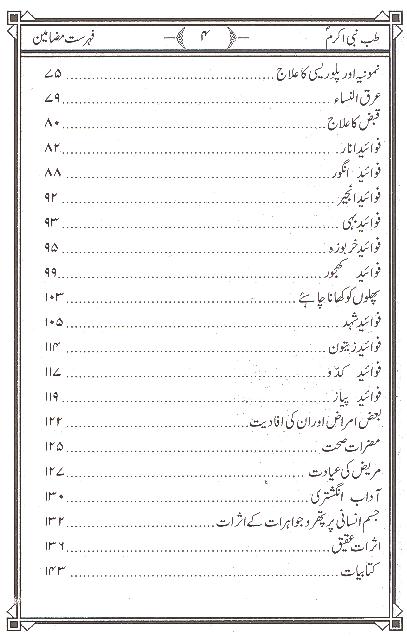 طب نبی اکرمؐ ۴ فہرست مضامین
نمونیہ اور پلوریسی کا علاج ۷۵
عرق النساء ۷۹
قبض کا علاج ۸۰
فوائید انار ۸۲
فوائید انگور ۸۸
فوائید انجیر ۹۲
فوائید بہی ۹۳
فوائید خربوزہ ۹۵
فوائید کھجور ۹۹
پھلوں کو کھانا چاہئے ۱۰۳
فوائید شہد ۱۰۵
فوائید زیتون ۱۱۴
فوائید کدّو ۱۱۷
فوائید پیاز ۱۱۹
بعض امراض اور ان کی افادیت ۱۲۲
مضرات صحت ۱۲۵
مریض کی عیادت ۱۲۷
آداب انگشتری ۱۳۰
جسم انسانی پر پتھر و جواہرات کے اثرات ۱۳۲
اثرات عقیق ۱۳۶
کتابیات ۱۴۳